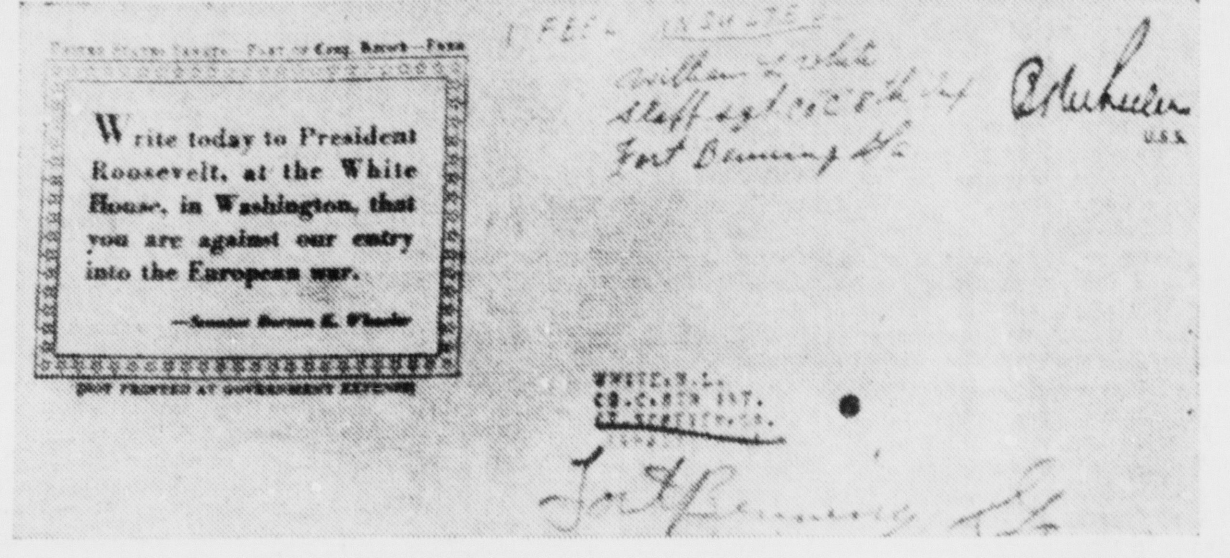 UNITED STATES SENATE—PART OF CONG. RECORD—FREE
Write today to President
Roosevelt, at the White
House, in Washington, that
you are against our entry
into the European war.
—Senator Burton K. Wheeler
[NOT PRINTED AT GOVERNMENT EXPENSE]
I FEEL INSULTED
William L White
Staff sgt Co C 8th Inf
Fort Benning Ga
B K Wheeler
U.S.S.
WHITE, W.L.
CO.C.8TH INF.
FT.
Fort Benning Ga